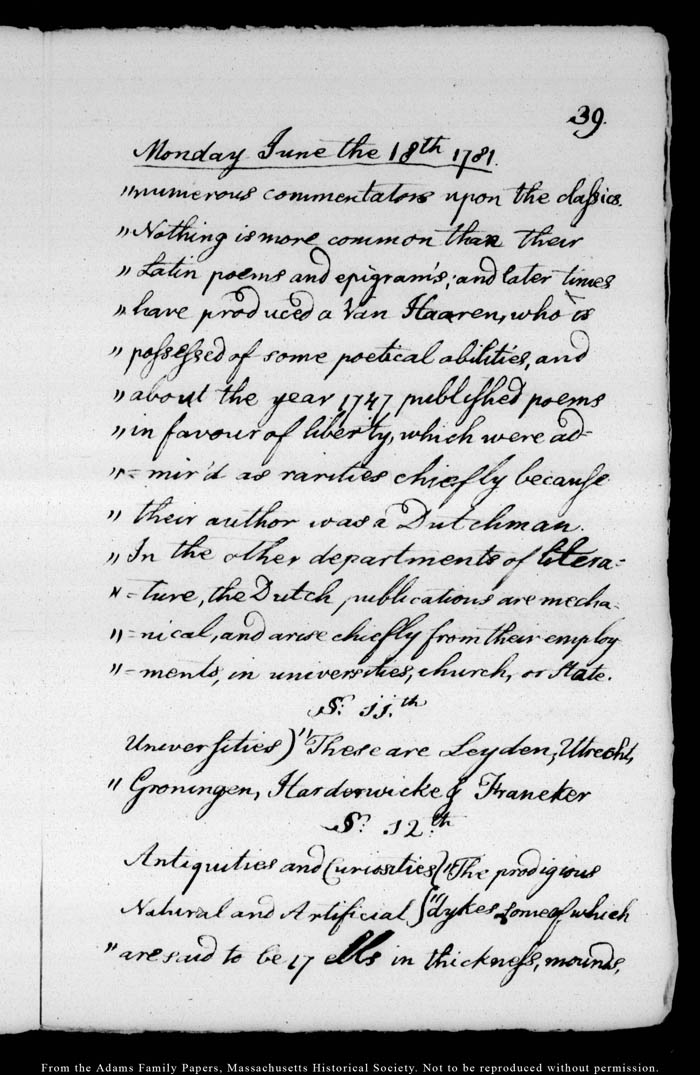 39.
Monday June the 18th 1781.
"numerous commentators upon the classics.
"Nothing is more common than their
"Latin poems and epigram's; and later times
"have produced a Van Haaren, who is
"possessed of some poetical abilities, and
"about the year 1747 published poems
"in favour of liberty, which were ad-
"=mir'd as rarities chiefly because
"their author was a Dutchman.
"In the other departments of litera=
"=ture, the Dutch publications are mecha=
"=nical, and arise chiefly from their employ
"=ments, in universities, church, or State.
S: 11.th
Universities) "These are Leyden, Utrecht,
"Groningen, Harderwicke & Franeker
S: 12.th
Antiquities and Curiosities { "The prodigious
Natural and Artificial { "dykes some of which
"are said to be 17 ells in thickness, mounds,
From the Adams Family Papers, Massachusetts Historical Society. Not to be reproduced without permission.